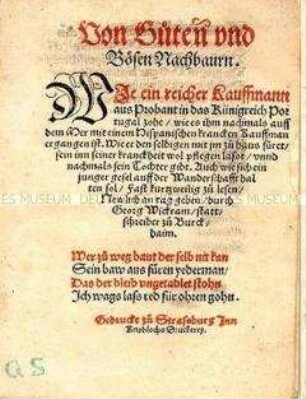 Von Güten vnd
Bösen Nachbaurn.
WIe ein reicher Kauffmann
aus Probant in das Künigreich Por
tugal zohe / wie es ihm nachmals auff
dem Mer mit einem Hispanischen krancken Kauffman
ergangen ist. Wie er den selbigen mit jm zü hauß füret /
sein inn seiner kranckheit wol pflegen laßt / vnnd
nachmals sein Tochter gibt. Auch wie sich ein
junger gesel auff der Wanderschafft hal
ten sol / Fast kurtzweilig zü lesen /
New lich an tag geben / durch
Georg Wickram / statt
schreiber zü Burck
haim.
Wer zü weg baut der selb nit kan
Sein baw aus füren yederman /
Das der bleib vngetadlet stohn
Ich wags lass red für ohren gohn.
Gedruckt zü Strassburg Inn
Knoblochs Druckerey.
ES MUSEUM
DEUTSCHES MUSEUM
QS